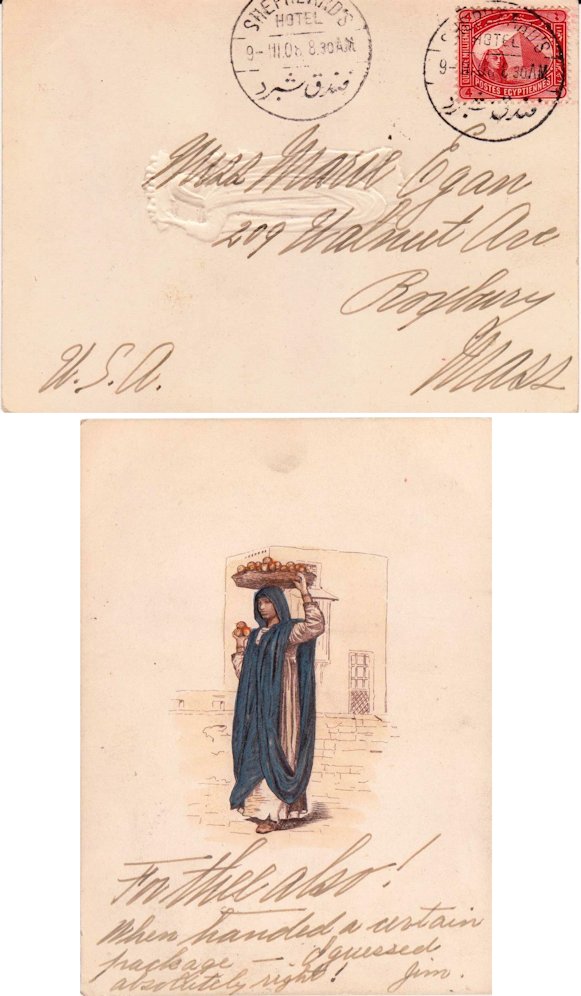 SHEPHEARD'S
HOTEL
9-III.08 8.30AM
فندق شبرد
SHEPHEARD'S
HOTEL
9-III.08 8.30AM
فندق شبرد
POSTES EGYPTIENNES
4
Miss Marie Egan
209 Walnut Ave
Roxbury
Mass
U.S.A.
For thee also!
When handed a certain
package — I guessed
absolutely right! Jim.